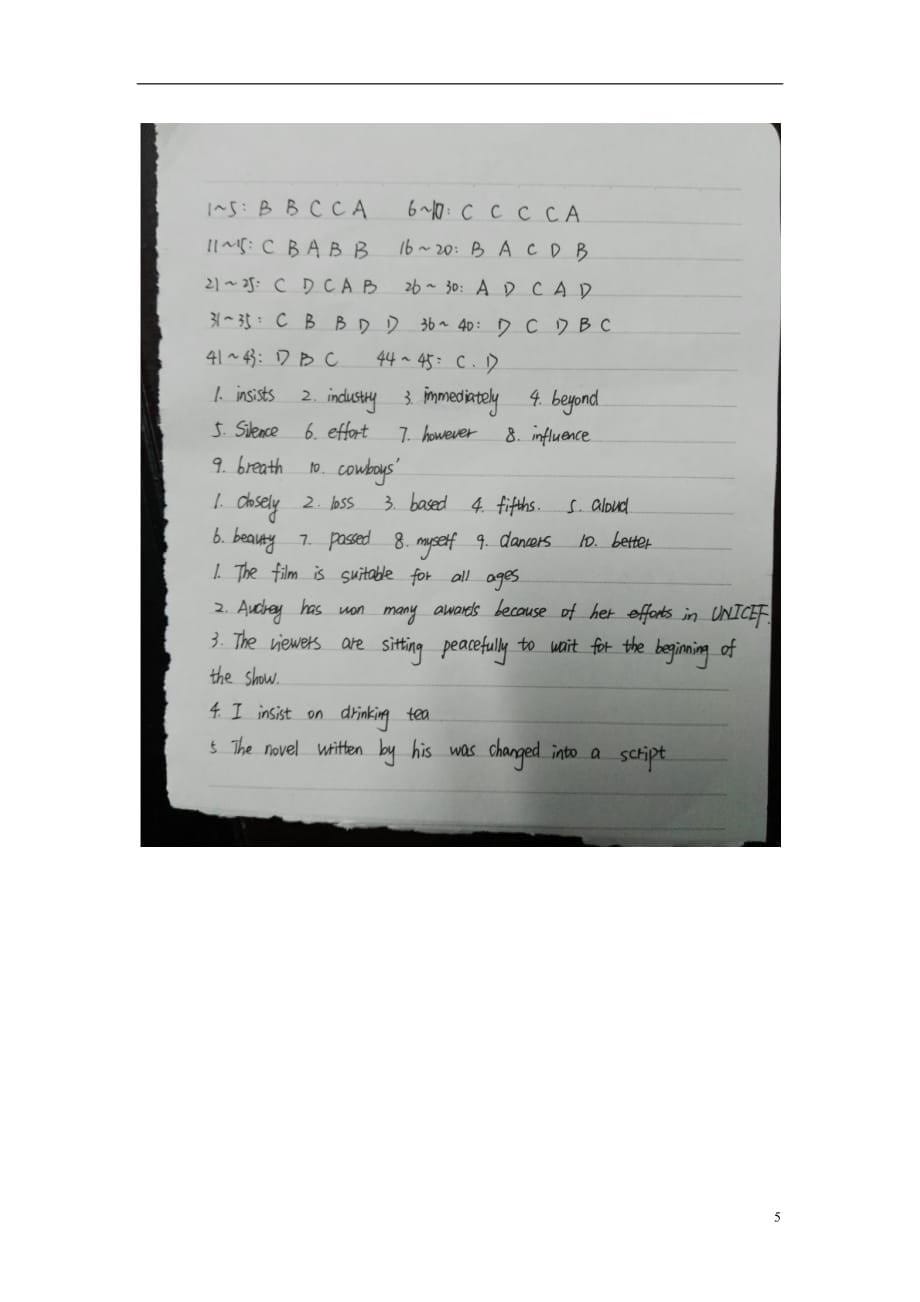 1~5: B B C C A 6~10: C C C C A
11~15: C B A B B 16~20: B A C D B
21~25: C D C A B 26~30: A D C A D
31~35: C B B D D 36~40: D C D B C
41~43: D B C 44~45: C. D
1. insists 2. industry 3. immediately 4. beyond
5. Silence 6. effort 7. however 8. influence
9. breath 10. cowboys'
1. closely 2. loss 3. based 4. fifths. 5. aloud
6. beauty 7. passed 8. myself 9. dancers 10. better
1. The film is suitable for all ages
2. Audrey has won many awards because of her efforts in UNICEF.
3. The viewers are sitting peacefully to wait for the beginning of
the show.
4. I insist on drinking tea
5. The novel written by his was changed into a script
5